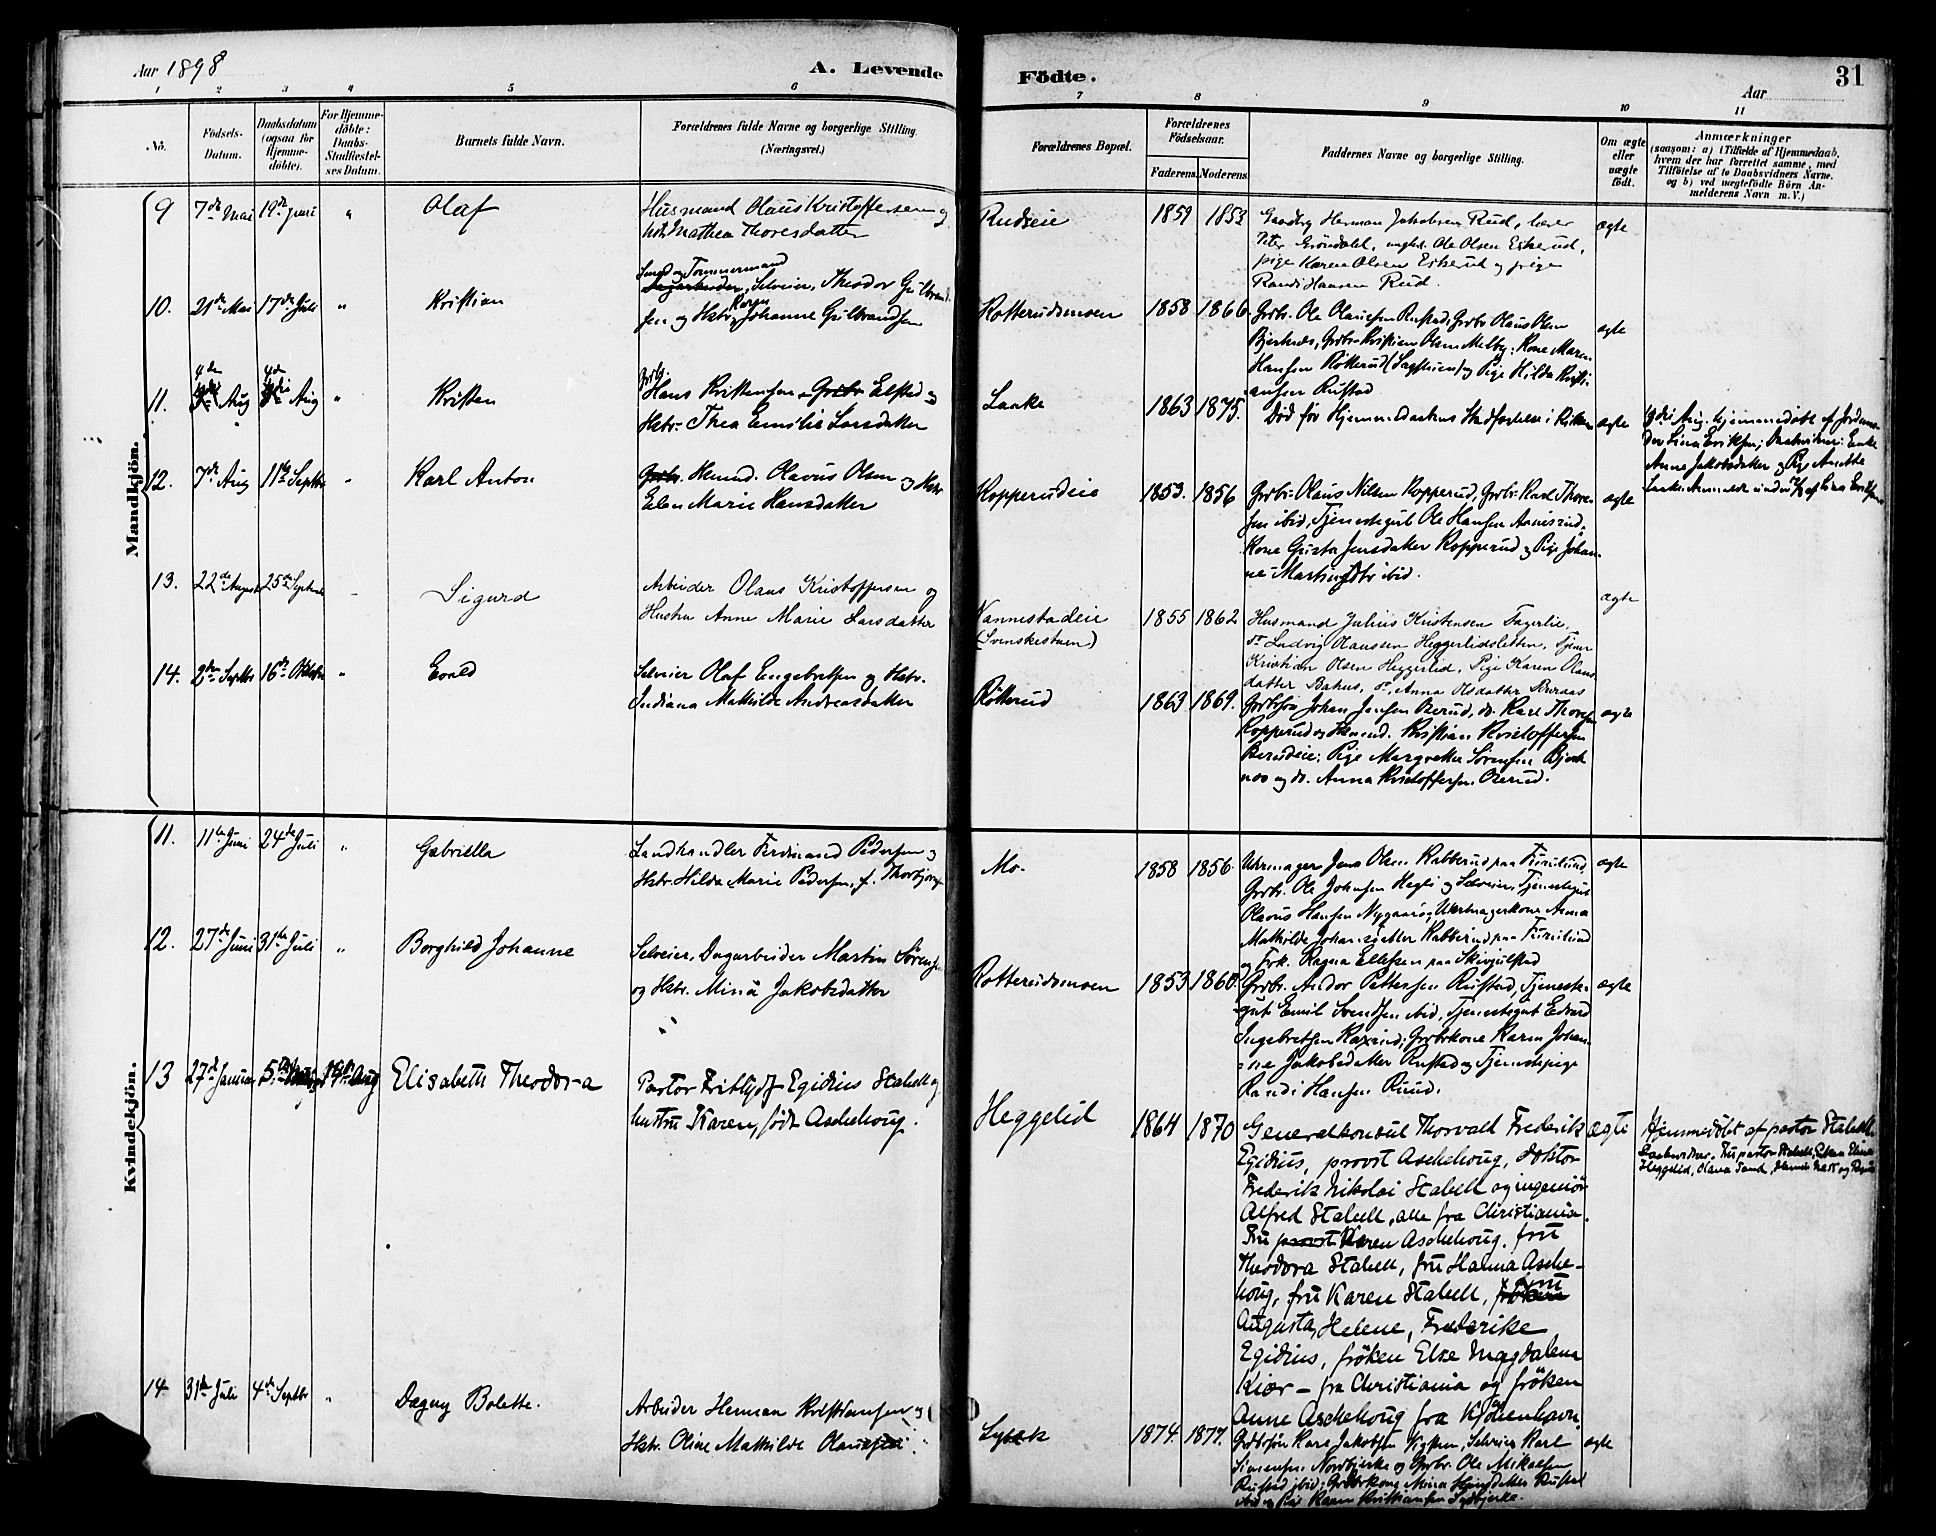 Aar 1898
A. Levende
Födte.
31
Aar
1 2 3 4 5 6 7 8 9 10 11
No.
Födsels-
Datum.
Daabsdatum
(ogsaa for
Hjemme-
döbte).
For Hjemme-
döbte:
Daabs-
Stadfæstel-
ses Datum.
Barnets fulde Navn.
Forældrenes fulde Navne og borgerlige Stilling.
(Næringsvei.)
Forældrenes Bopæl.
Forældrenes
Födselsaar.
Faderens. Moderens.
Faddernes Navne og borgerlige Stilling.
Om ægte
eller
uægte
födt.
Anmærkninger
(saasom: a) i Tilfælde af Hjemmedaab,
hvem der har forrettet samme, med
Tilföielse af to Daabsvidners Navne.
og b) ved uægtefödte Börn An-
melderens Navn m.V.)
Mandkjön.
9 7de Mai 19de Juni " Olaf
Husmand Olaus Kristoffersen og
Hstr Mathea Thoresdatter
Rudseie 1859 1853
Gaardbr Herman Jakobsen Rud, lærer
Peter Gröndalet, ungk. Ole Olsen Eskerud,
pige Karen Olsen Eskerud og pige
Randi Hansen Rud.
ægte
10. 21de Mai 17de Juli " Kristian
Smed og Tømmermand
Dagarbeider, Selveier, Theodor Gulbrand-
sen og Hstr. Karen Johanne Gulbrandsen
Rotterudsmoen 1858 1866.
Grdbr. Ole Olausen Rustad, Grdbr Olaus Olsen
Bjerknes, Grdbr. Kristian Olsen Melby; Kone Maren
Hansen Rotterud (Sagstuen) og Pige Hilda Kristi-
ansen Rustad
ægte
11. 4de Aug 4de Aug " Kristen
Grdbr.
Hans Kristensen Grdbr Elstad og
Hstr. Thea Emilie Larsdatter
Laake 1863 1875.
Død før Hjemmedaabens Stadfæstelse i Kirken
ægte
4de Aug. hjemmedøbt af Jordmo-
der Lina Eriksen; Daabsvidner: Enke
Anne Jakobsdatter og Pige Anette
Laake. Anmeldt under af Lina Eriksen
12. 7de Aug 11te Septbr " Karl Anton
Grdbr. Hsmnd. Olavus Olsen og Hstr
Elen Marie Hansdatter
Kopperudeie 1853. 1856
Grdbr. Olaus Nilsen Kopperud, Grdbr. Karl Thore-
sen ibid, Tjenestegut Ole Hansen Aamisrud,
Kone Gusta Jensdatter Kopperud og Pige Johan-
ne Martinsdtr ibid.
ægte
13. 22de August 25de Septemb Sigurd
Arbeider Olaus Kristoffersen og
Hustru Anne Marie Larsdatter
Nannestadeie
(Svenskestuen)
1855 1862
Husmand Julius Kristensen Fagerlie,
do Ludvig Olaussen Heggerlidsletten, Tjener
Kristian Olsen Heggerlid, Pige Karen Olaus
datter Bahus, do, Anna Olsdatter Buraas
ægte
14. 2den Septbr 16de Oktober " Evald
Selveier Olaf Engebretsen og Hstr.
Indiana Mathilde Andreasdatter
Rotterud 1863 1869.
Grdbrsøn Johan Jensen Berud, do. Karl Thoresen
Kopperud og Hsmnd. Kristian Kristoffersen
Berudeie; Pige Margrethe Sørensen Bjerk-
nes og do. Anna Kristoffersen Berud.
ægte
Kvindekjön.
11. 11te Juni 24de Juli " Gabriella
Landhandler Ferdinand Pedersen og
Hstr. Hilda Marie Pedersen, f. Thorbjørnsen
Mo. 1858 1856.
Uhrmager Jens Olsen Rabberud paa Furulund,
Grdbr. Ole Johnsen Hegli og Selveier, Tjenestegut
Olavus Hansen Nygaard, Uhrmagerkone Anna
Mathilde Johansdatter Rabberud paa Furulund
og Frk. Ragna Ellefsen paa Skivjulstad
ægte
12. 27de Juni 31te Juli " Borghild Johanne
Selveier, Dagarbeider Martin Sørensen
og Hstr. Mina Jakobsdatter
Rotterudsmoen 1853 1860.
Grdbr. Andor Pettersen Rustad, Tjeneste-
gut Emil Svendsen ibid, Tjenestegut Edvard
Ingebretsen Raxrud; Grdbrkone Karen Johan-
ne Jakobsdatter Rustad og Tjenestepige
Randi Hansen Ruud.
ægte
13 27de Januar 5te 15de Aug Elisabeth Theodora
Pastor Frithjof Egidius Stabell og
hustru Karen, født Aschehoug.
Heggelid 1864 1870
Generalkonsul Thorvald Frederik
Egidius, provst Aschehoug, doktor
Frederik Nikolai Stabell og ingeniør
Alfred Stabell, alle fra Christiania.
Fru provst Karen Aschehoug, fru
Theodora Stabell, fru Hanna Asche-
houg, fru Karen Stabell, frøken fru
Augusta, Helene, Frederike
Egidius, frøken Else Magdalena
Kiær – fra Christiania og frøken
Anne Aschehoug fra Kjøbenhavn
ægte
Hjemmedøbt af pastor Stabell.
Daabsvidner. Fru pastor Stabell,
Heggelid, Olava
14 31te Juli 4de Septbr " Dagny Bolette.
Arbeider Herman Kristiansen og
Hstr. Oline Mathilde Olausdtr.
Lybæk 1874. 1877.
Grdbrsøn Karl Jakobsen Vigstein, Selveier Karl
Simensen Nordbjerke og Grdbr. Ole Mikalsen
Rustad ibid; Grdbrkone Mina Hansdatter Rustad
ibid og Pige Karen Kristiansen Sydbjerke.
ægte